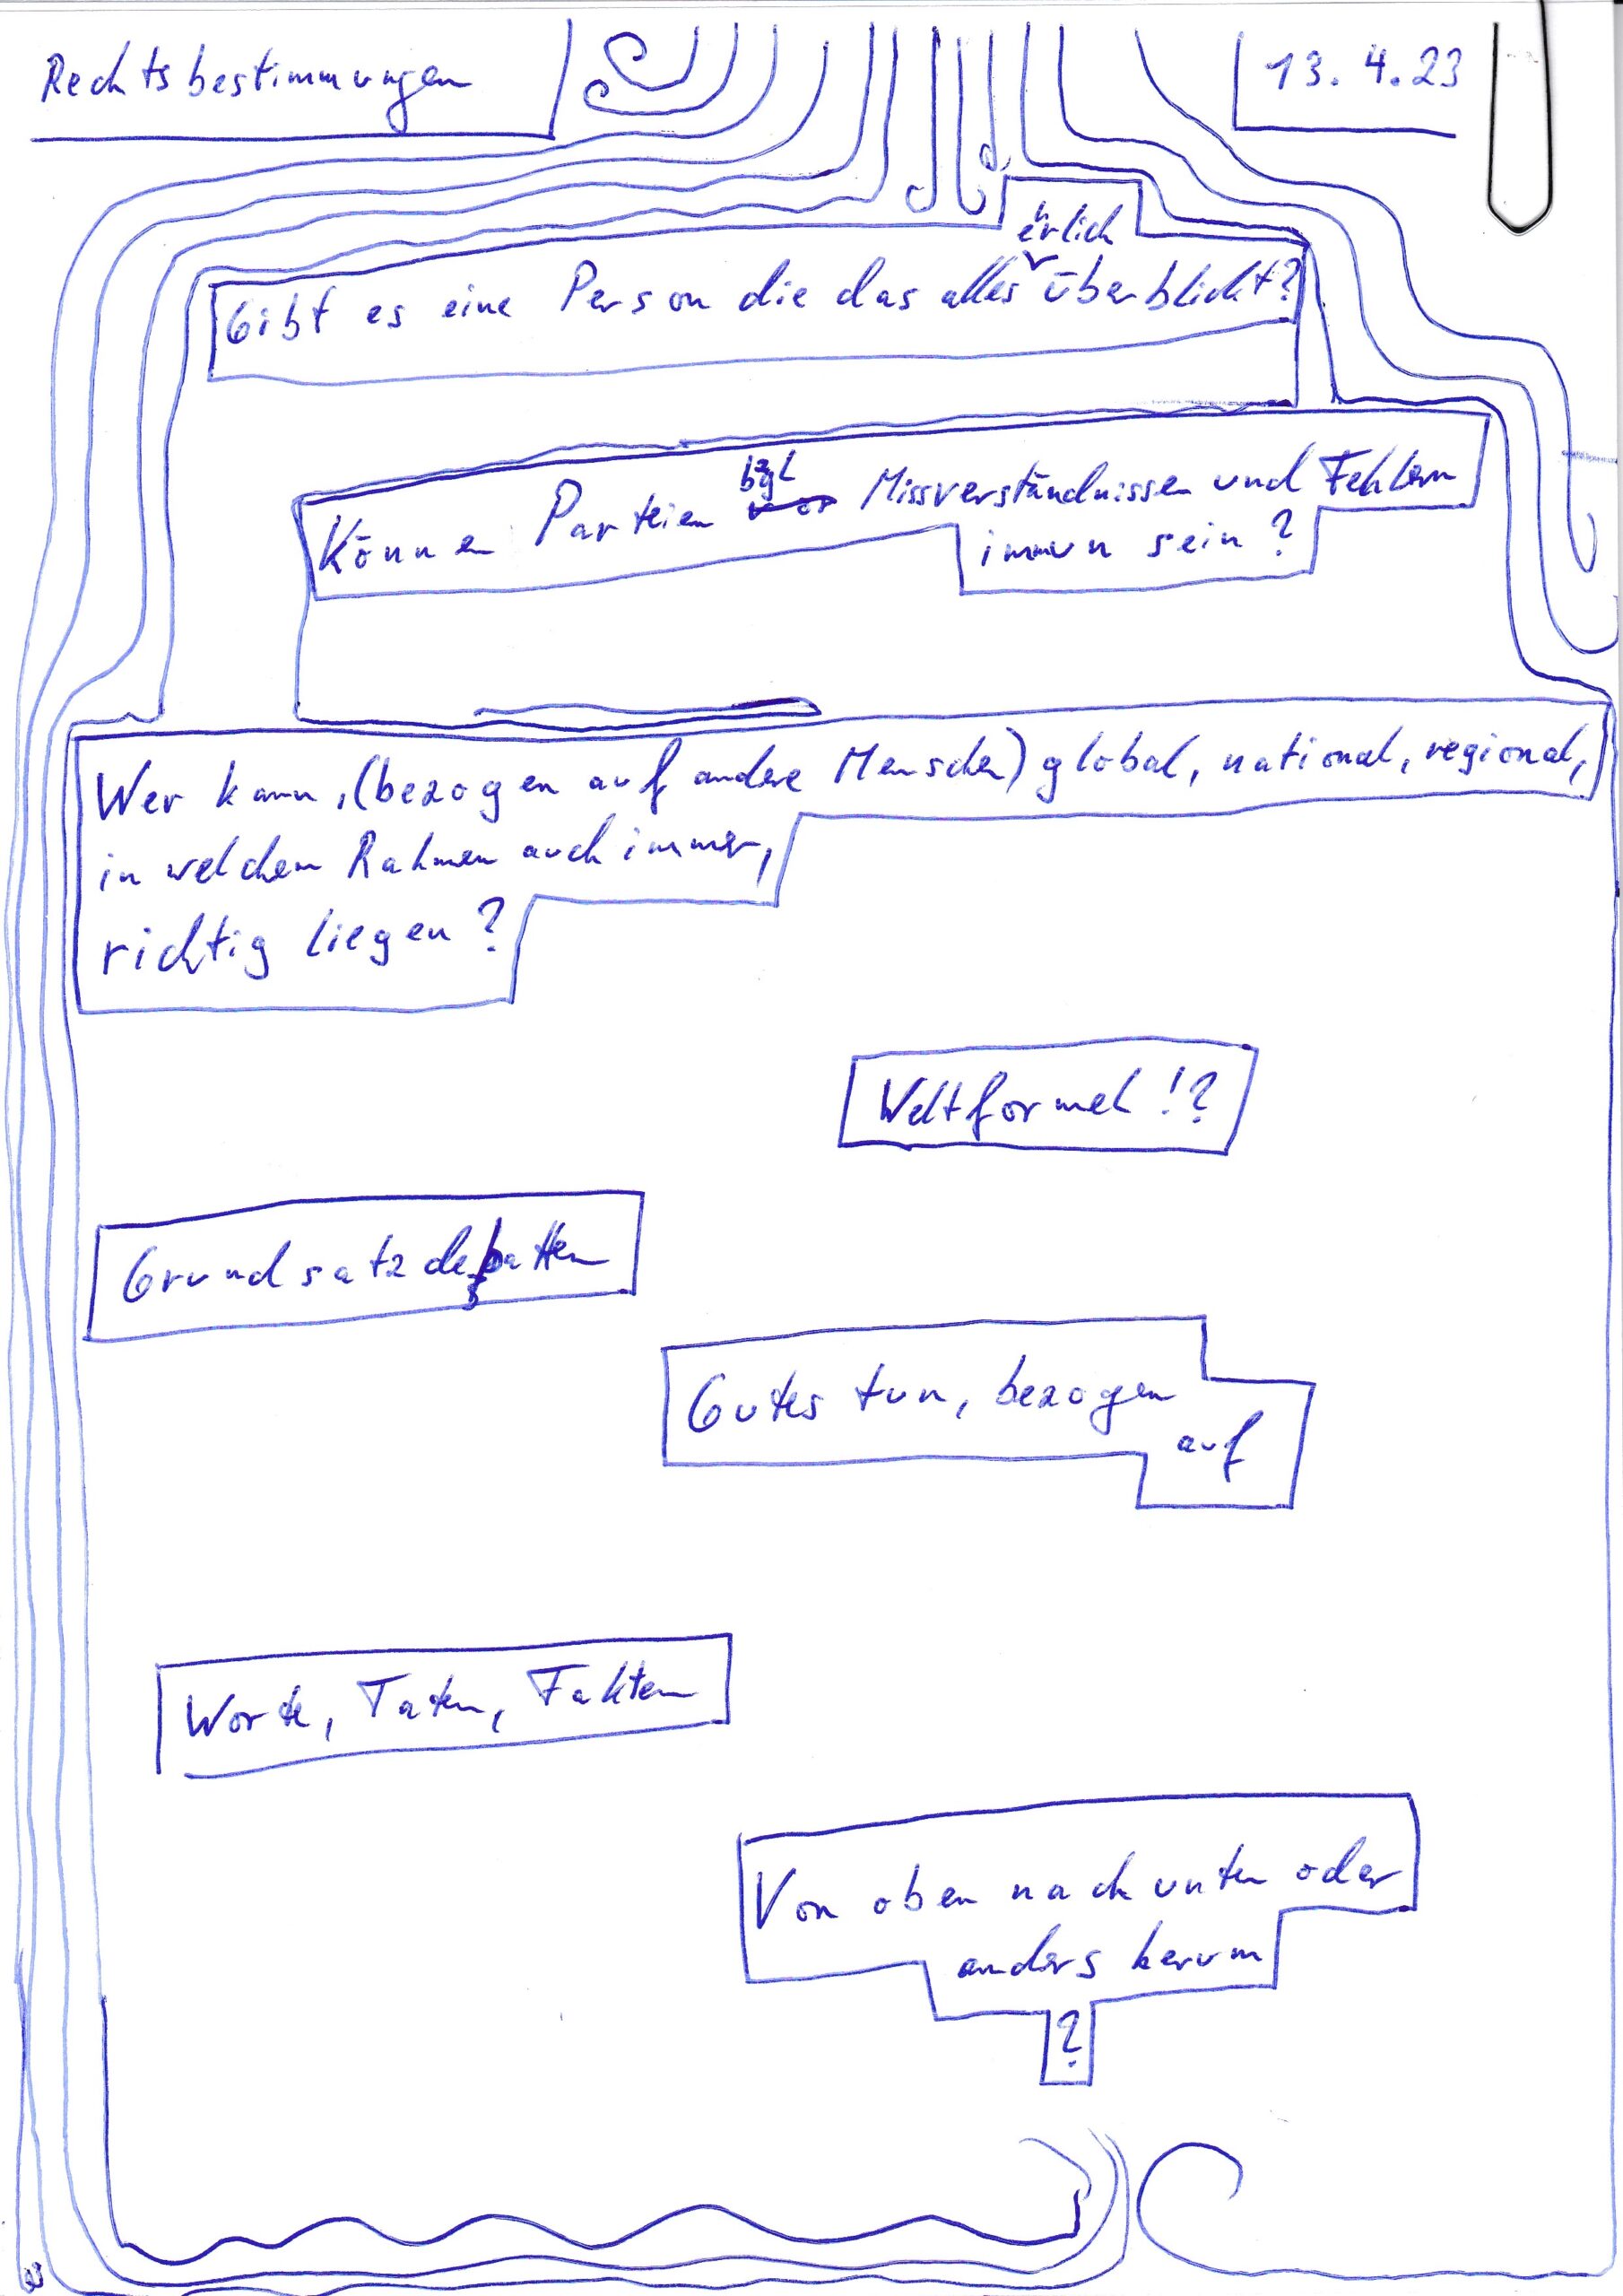 Rechtsbestimmungen
13.4.23
ehrlich
Gibt es eine Person die das alles überblickt?
bzgl
Können Parteien vor Missverständnissen und Fehlern
immun sein?
Wer kann, (bezogen auf andere Menschen) global, national, regional,
in welchem Rahmen auch immer,
richtig liegen?
Weltformel!?
Grundsatzdebatten
Gutes tun, bezogen
auf
Worte, Taten, Fakten
Von oben nach unten oder
anders herum
?